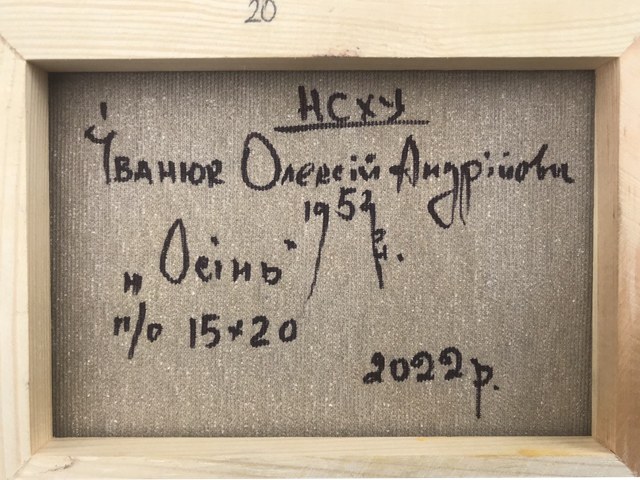 20
НСХУ
Іванюк Олексій Андрійович
1952 р.н.
"Осінь"
п/о 15×20
2022 р.